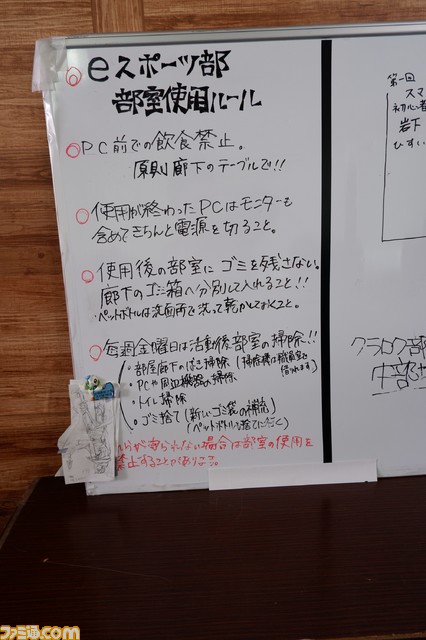 eスポーツ部
部室使用ルール
PC前での飲食禁止。
原則廊下のテーブルで!!
使用が終わったPCはモニターも
含めてきちんと電源を切ること。
使用後の部室にゴミを残さない。
廊下のゴミ箱へ分別して入れること!!
ペットボトルは洗面所で洗って乾かしておくこと。
毎週金曜日は活動後部室の掃除!!
・部屋廊下のはき掃除(掃除機は職員室で借りれます)
・PCや周辺機器の掃除
・トイレ掃除
・ゴミ捨て(新しいゴミ袋の補充)
(ペットボトルも捨てに行く)
らが守られない場合は部室の使用を
禁止することがありえる。
第一回
スマ
初心者
岩下
ひすい
クラロワ部
ファミ通.com